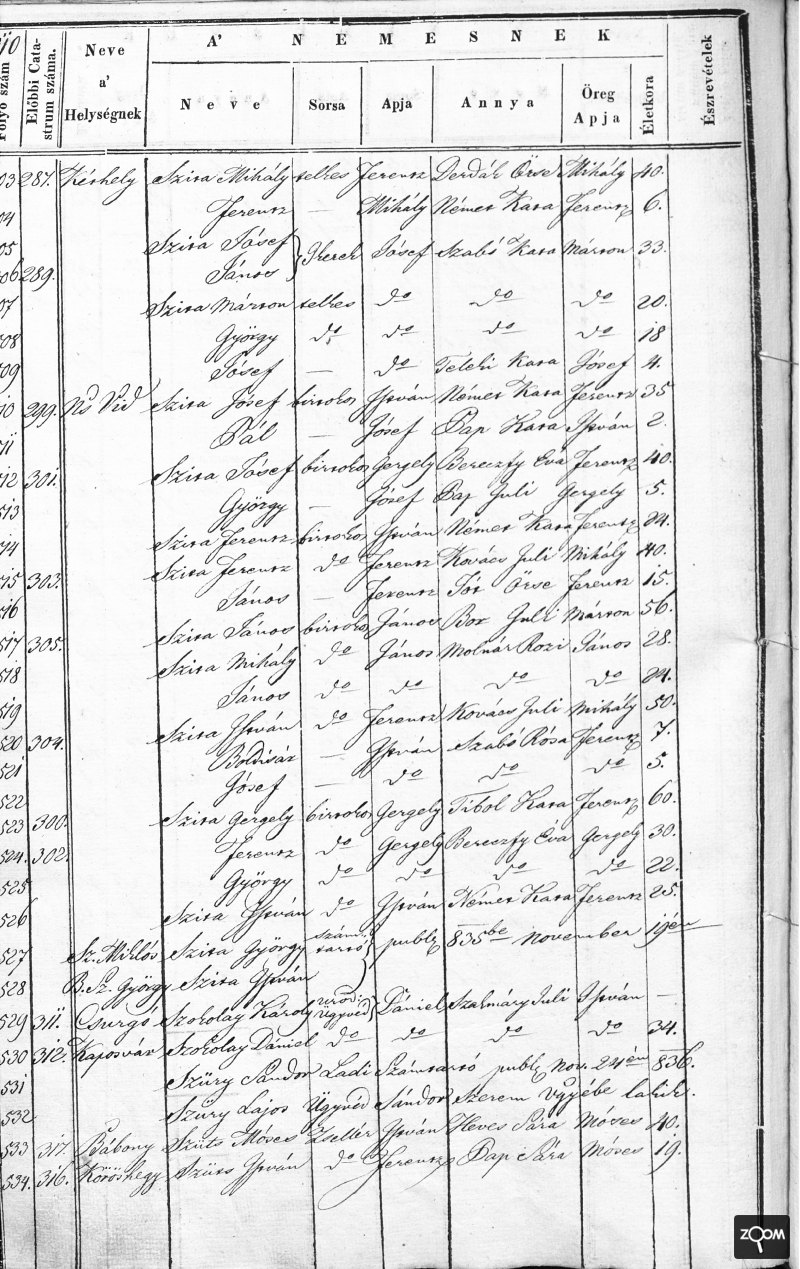 A' NEMESNEK
Folyó szám | Előbbi Catastrum száma. | Neve a' Helységnek | Neve | Sorsa | Apja | Annya | Öreg Apja | Életkora | Észrevételek
03 287. Kéthely Szita Mihály telkes Ferencz Derdák Örse Mihály 40.
04 Ferencz — Mihály Német Kata Ferencz 6.
05 Szita Jósef Jósef Szabó Kata Márton 33.
06 289. János
07 Szita Márton telkes do do do 20.
08 György do do do do 18
09 Jósef — do Teleki Kata Jósef 4.
10 299. Ns Vid Szita Jósef birtokos István Német Kata Ferencz 35
11 Pál — Jósef Pap Kata István 2.
12 301. Szita Jósef birtokos Gergely Bereczfy Éva Ferencz 40.
513 György — Jósef Pap Juli Gergely 5.
14 Szita Ferencz birtokos István Német Kata Ferencz 24.
515 303. Szita Ferencz do Ferencz Kovács Juli Mihály 40.
516 János — Ferencz Tót Örse Ferencz 15.
517 305. Szita János birtokos János Box Juli Márton 56.
518 Szita Mihály do János Molnár Rozi János 28.
519 János do do do do 24.
520 304. Szita István do Ferencz Kovács Juli Mihály 50.
521 Boldisár — István Szabó Rósa Ferencz 7.
522 Jósef — do do do 5.
523 300. Szita Gergely birtokos Gergely Tibol Kata Ferencz 60.
524. 302. Ferencz do Gergely Bereczfy Éva Gergely 30.
525 György do do do do 22.
526 Szita István do István Német Kata Ferencz 25.
527 Sz. Miklós Szita György számtartó publ. 835be November 19én
528 B. Sz. György Szita István
529 311. Csurgó Szokolay Károly urod: Ügyvéd Dániel Szalmáry Juli István —
530 312. Kaposvár Szokolay Dániel do do do do 34.
531 Szüry Sandor Ladi Számtartó publ. Nov. 24én 836.
532 Szüry Lajos Ügyvéd Sándor Szerem Vgyébe lakik.
533 317. Bábony Szüts Móses Zsellér István Heves Sára Móses 40.
534. 316. Köröshegy Szüts István do Ferencz Pap Sára Móses 19.
ZOOM